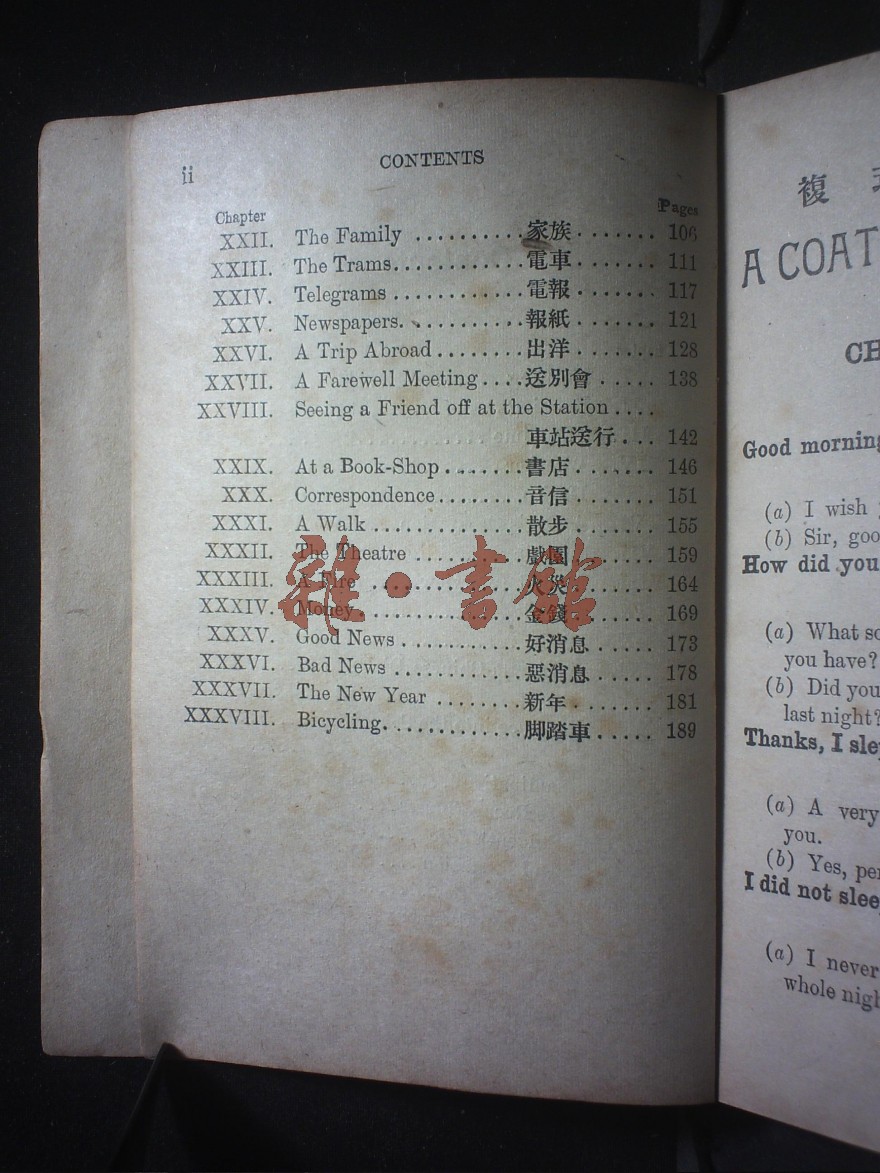 ii
CONTENTS
Chapter Pages
XXII. The Family ..........家族....... 106
XXIII. The Trams............電車....... 111
XXIV. Telegrams ............電報....... 117
XXV. Newspapers. ..........報紙....... 121
XXVI. A Trip Abroad........出洋....... 128
XXVII. A Farewell Meeting....送別會..... 138
XXVIII. Seeing a Friend off at the Station ....
車站送行... 142
XXIX. At a Book-Shop .......書店....... 146
XXX. Correspondence........音信....... 151
XXXI. A Walk ..............散步....... 155
XXXII. The Theatre ..........戲園....... 159
XXXIII. A Fire ..............火災....... 164
XXXIV. Money................金錢....... 169
XXXV. Good News ...........好消息..... 173
XXXVI. Bad News ............惡消息..... 178
XXXVII. The New Year ........新年....... 181
XXXVIII. Bicycling.............脚踏車..... 189
雜·書館
複
A COAT
CH
Good morning
(a) I wish
(b) Sir, goo
How did you
(a) What so
you have?
(b) Did you
last night?
Thanks, I sle
(a) A very
you.
(b) Yes, per
I did not slee
(a) I never
whole nigh